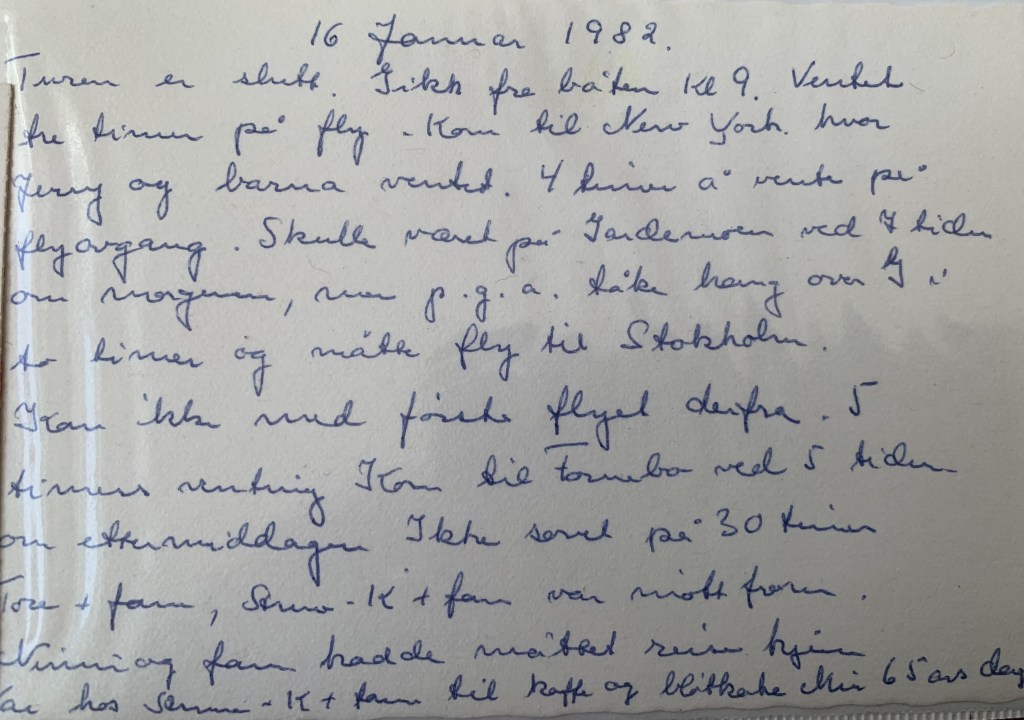 16 Januar 1982.
Turen er slutt. Gikk fra båten Kl 9. Ventet
tre timer på fly. Kom til New York. hvor
Jerry og barna ventet. 4 timer å vente på
flyavgang. Skulle været på Gardemoen ved 7 tiden
om morgenen, men p.g.a. tåke hang over G i
to timer og måtte fly til Stokholm.
Kom ikke med første flyet derfra. 5
timers venting Kom til Fornebo ved 5 tiden
om ettermiddagen Ikke sovet på 30 timer
Tore + fam, - K + fam var møtt frem.
Ninni og fam hadde måttet reise hjem
Var hos - K + fam til kaffe og bløtkake Min 65 års dag